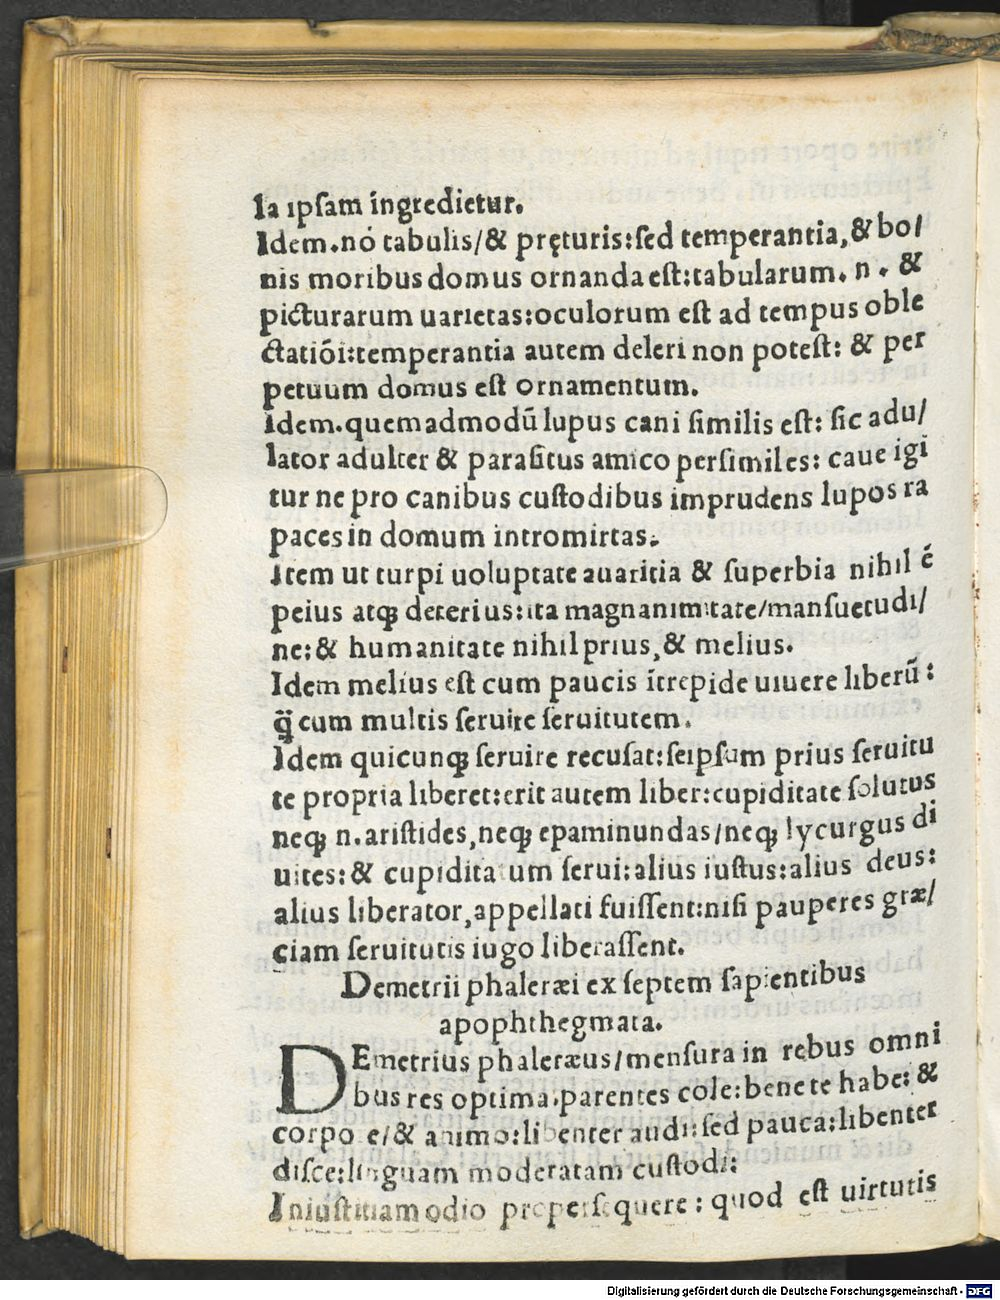 la ipsam ingredietur.
Idem.nō tabulis/& pręturis:sed temperantia,& bo/
nis moribus domus ornanda est:tabularum. n . &
picturarum uarietas:oculorum est ad tempus oble
ctatiōi:temperantia autem deleri non potest: & per
petuum domus est ornamentum.
Idem.quemadmodū lupus cani similis est: sic adu/
lator adulter & parasitus amico persimiles: caue igi
tur ne pro canibus custodibus imprudens lupos ra
paces in domum intromittas.
Item ut turpi uoluptate auaritia & superbia nihil ē
peius atqꝫ deterius:ita magnanimitate/mansuetudi/
ne:& humanitate nihil prius,& melius.
Idem melius est cum paucis ītrepide uiuere liberū:
q̄ cum multis seruire seruitutem.
Idem quicunqꝫ seruire recusat:seipsum prius seruitu
te propria liberet:erit autem liber:cupiditate solutus
neqꝫ n.aristides,neqꝫ epaminundas/neqꝫ lycurgus di
uites:& cupiditatum serui:alius iustus:alius deus:
alius liberator,appellati fuissent:nisi pauperes græ/
ciam seruitutis iugo liberassent.
Demetrii phaleræi ex septem sapientibus
apophthegmata.
DEmetrius phaleræus/mensura in rebus omni
bus res optima.parentes cole:bene te habe: &
corpore/& animo:libenter audi:sed pauca:libenter
disce:linguam moderatam custodi:
Iniustitiam odio prosequere: quod est uirtutis
Digitalisierung gefördert durch die Deutsche Forschungsgemeinschaft - DFG